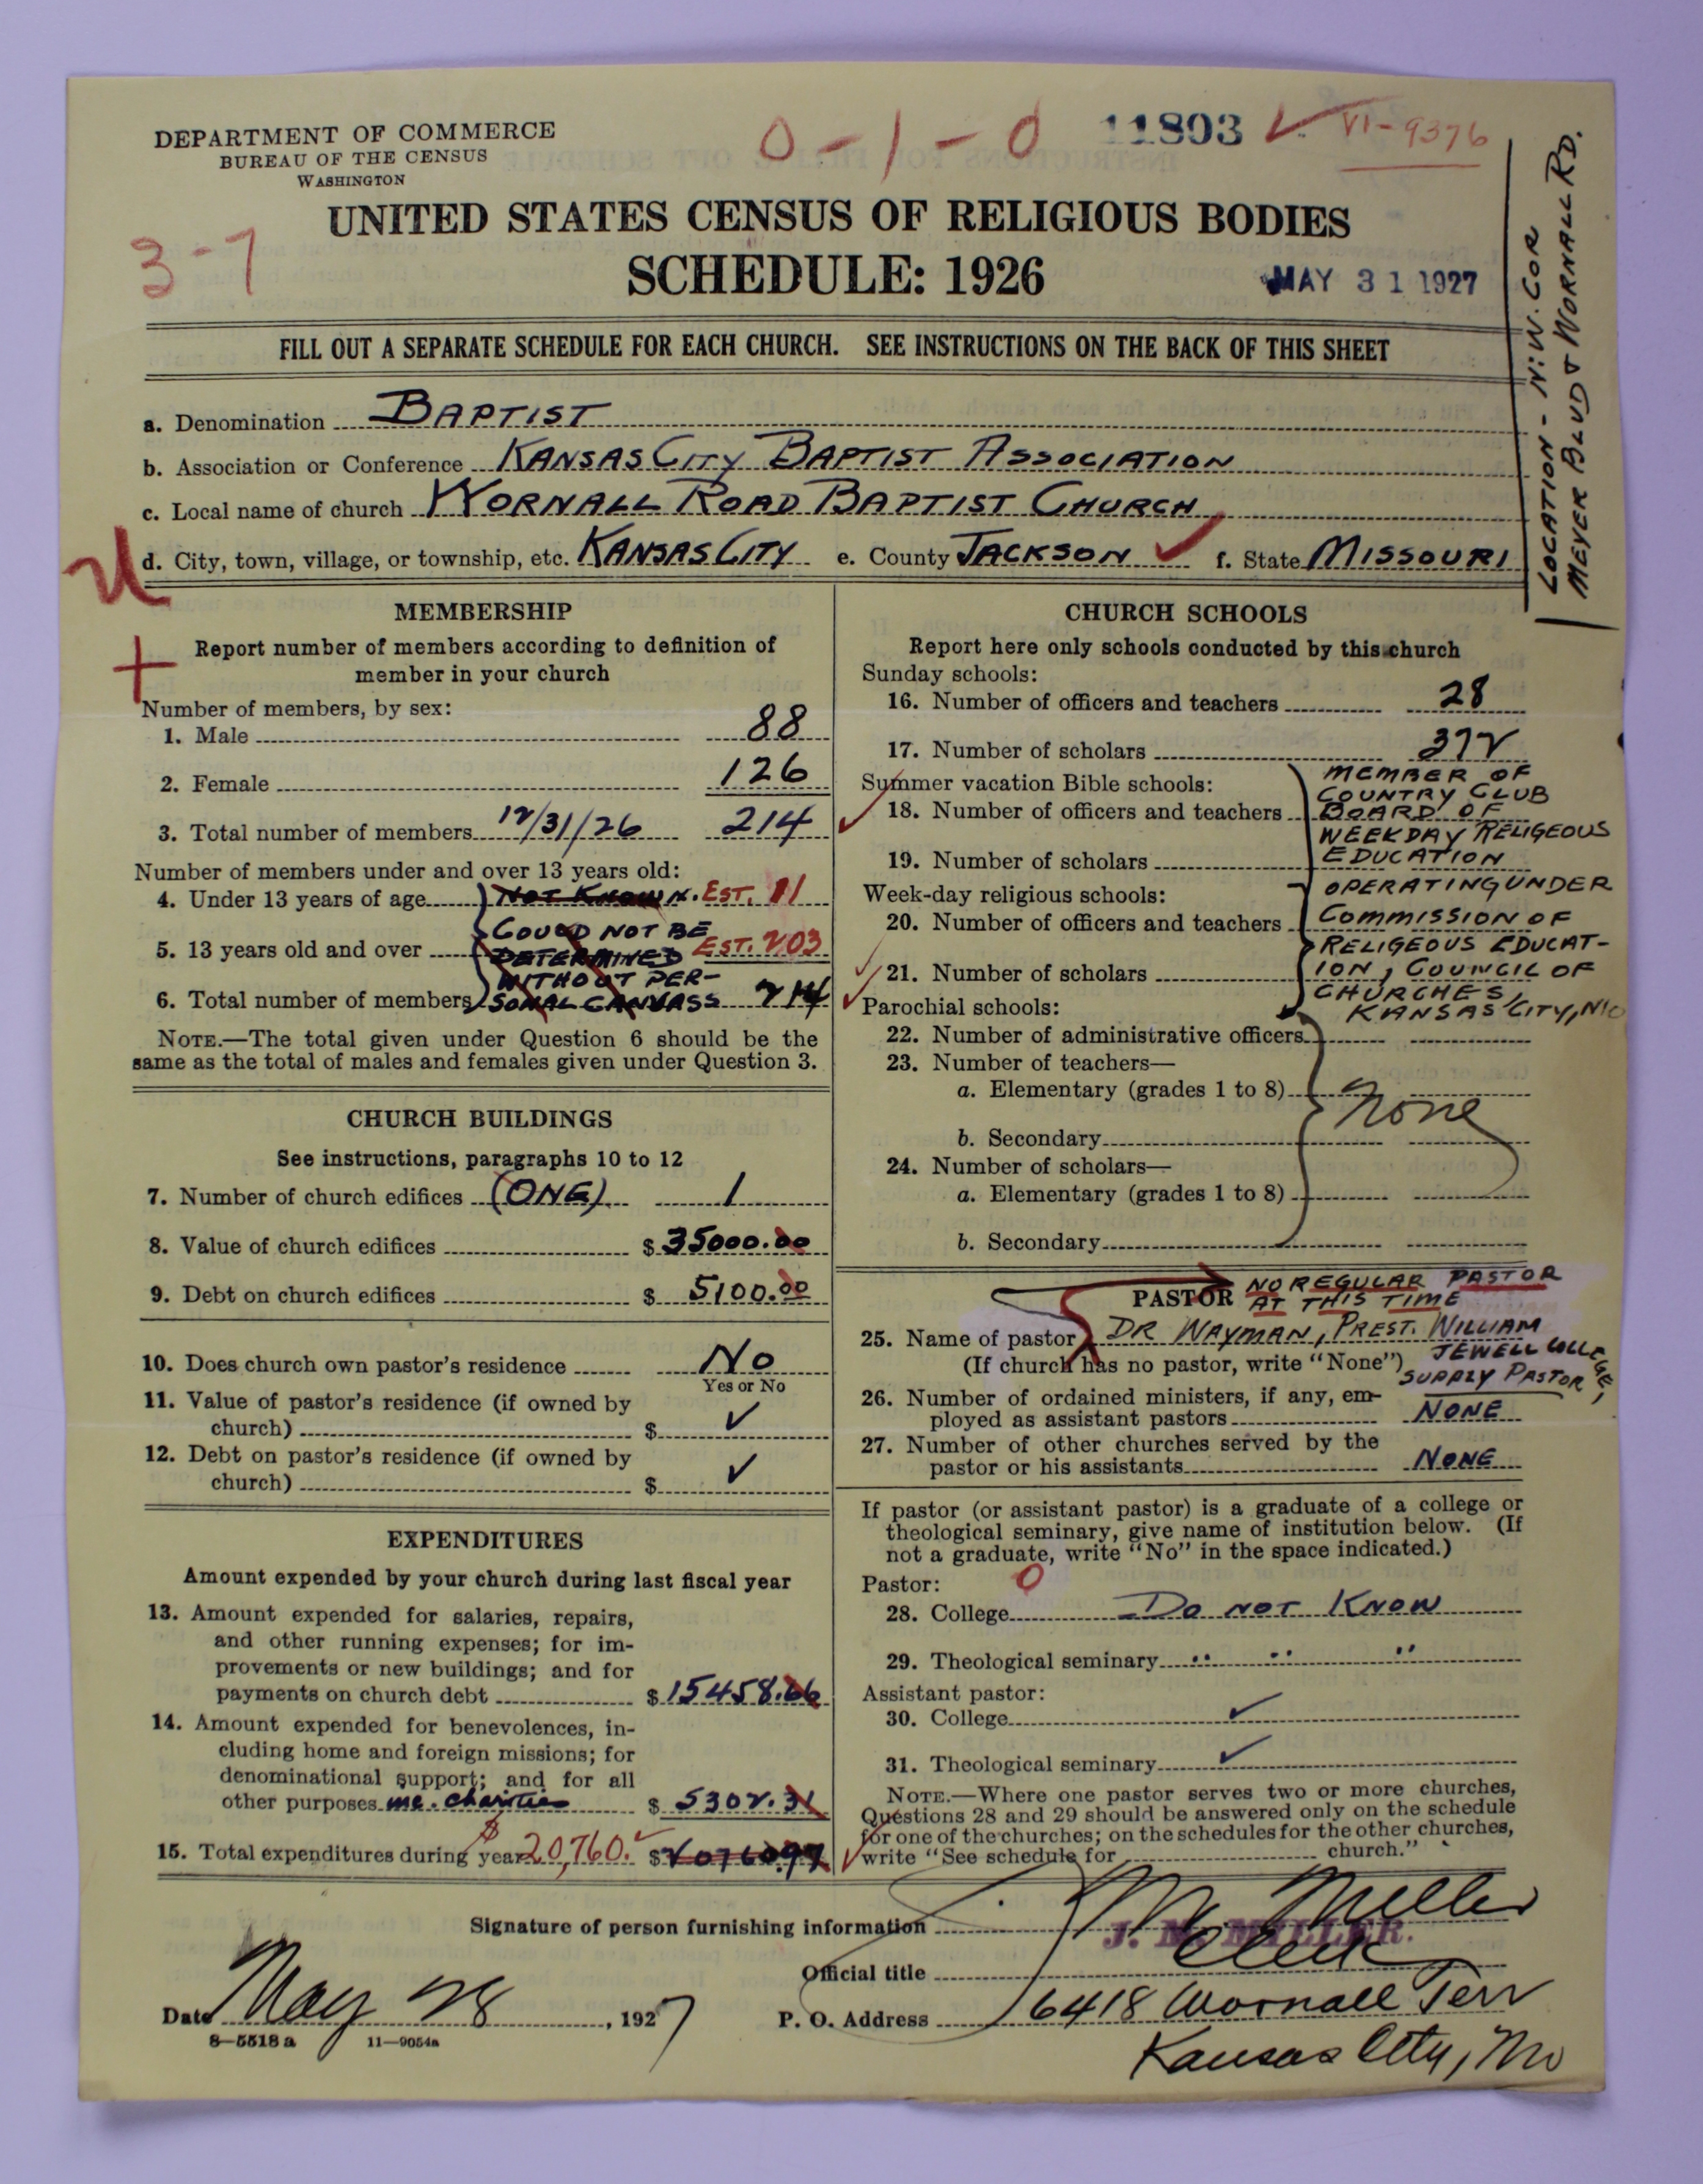 DEPARTMENT OF COMMERCE
BUREAU OF THE CENSUS
WASHINGTON
0-1-0
11803
VI-9376
UNITED STATES CENSUS OF RELIGIOUS BODIES
3-7
SCHEDULE: 1926
MAY 31 1927
FILL OUT A SEPARATE SCHEDULE FOR EACH CHURCH. SEE INSTRUCTIONS ON THE BACK OF THIS SHEET
LOCATION - N.W. COR
MEYER BLVD & WORNALL RD.
a. Denomination BAPTIST
b. Association or Conference KANSAS CITY BAPTIST ASSOCIATION
c. Local name of church WORNALL ROAD BAPTIST CHURCH
d. City, town, village, or township, etc. KANSAS CITY e. County JACKSON ✓ f. State MISSOURI
MEMBERSHIP
Report number of members according to definition of
member in your church
Number of members, by sex:
1. Male 88
2. Female 126
3. Total number of members 12/31/26 214
Number of members under and over 13 years old:
4. Under 13 years of age NOT KNOWN. EST. 11
COULD NOT BE
5. 13 years old and over DETERMINED EST. 203
WITHOUT PER-
6. Total number of members SONAL CANVASS 214
NOTE.—The total given under Question 6 should be the
same as the total of males and females given under Question 3.
CHURCH BUILDINGS
See instructions, paragraphs 10 to 12
7. Number of church edifices (ONE) 1
8. Value of church edifices $ 35000.00
9. Debt on church edifices $ 5100.00
10. Does church own pastor's residence No
Yes or No
11. Value of pastor's residence (if owned by
church) $ ✓
12. Debt on pastor's residence (if owned by
church) $ ✓
EXPENDITURES
Amount expended by your church during last fiscal year
13. Amount expended for salaries, repairs,
and other running expenses; for im-
provements or new buildings; and for
payments on church debt $ 15458.66
14. Amount expended for benevolences, in-
cluding home and foreign missions; for
denominational support; and for all
other purposes inc. charities $ 5302.31
15. Total expenditures during year $20,760. ✓ $ 20760.97
CHURCH SCHOOLS
Report here only schools conducted by this church
Sunday schools:
16. Number of officers and teachers 28
17. Number of scholars 372
Summer vacation Bible schools:
18. Number of officers and teachers
19. Number of scholars
MEMBER OF
COUNTRY CLUB
BOARD OF
WEEKDAY RELIGEOUS
EDUCATION
Week-day religious schools:
20. Number of officers and teachers
21. Number of scholars
OPERATING UNDER
COMMISSION OF
RELIGEOUS EDUCAT-
ION, COUNCIL OF
CHURCHES,
KANSAS CITY, MO
Parochial schools:
22. Number of administrative officers
23. Number of teachers—
a. Elementary (grades 1 to 8)
None
b. Secondary
24. Number of scholars—
a. Elementary (grades 1 to 8)
b. Secondary
PASTOR NO REGULAR PASTOR
AT THIS TIME
25. Name of pastor DR WAYMAN, PREST. WILLIAM
JEWELL COLLEGE,
(If church has no pastor, write "None") SUPPLY PASTOR
26. Number of ordained ministers, if any, em-
ployed as assistant pastors NONE
27. Number of other churches served by the
pastor or his assistants NONE
If pastor (or assistant pastor) is a graduate of a college or
theological seminary, give name of institution below. (If
not a graduate, write "No" in the space indicated.)
Pastor: 0
28. College DO NOT KNOW
29. Theological seminary " " "
Assistant pastor:
30. College ✓
31. Theological seminary ✓
NOTE.—Where one pastor serves two or more churches,
Questions 28 and 29 should be answered only on the schedule
for one of the churches; on the schedules for the other churches,
write "See schedule for church."
Signature of person furnishing information J. M. Miller
J. M. MILLER.
Official title Clerk
Date May 28, 1927 P. O. Address 6418 Wornall Terr
Kansas City, Mo
8—5518a 11—9054a